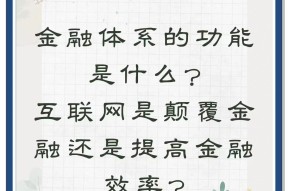 金融体系的功能
是什么?
互联网是颠覆金
融还是提高金融
效率?